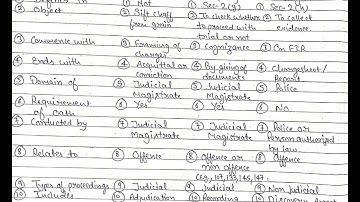 ① Not ① Sec-2(g) ① Sec-2(h)
② Object ② Sift chaff ② To check whether ② To collect
from grain to proceed with evidence
trial or not
③ Commence with ③ Framing of ③ Cognizance ③ On FIR
charges
④ Ends with ④ Acquittal or ④ By giving of ④ chargesheet /
conviction documents Report
⑤ Domain of ⑤ Judicial ⑤ Judicial ⑤ Police
Magistrate Magistrate
⑥ Requirement ⑥ Yes ⑥ Yes ⑥ No
of Oath
⑦ Conducted by ⑦ Judicial ⑦ Judicial ⑦ Police or
Magistrate Magistrate Person authorized
by law.
⑧ Relates to ⑧ Offence ⑧ Offence or ⑧ Offence
non offence
e.g., 107,133,145,147.
⑨ Types of proceedings ⑨ Judicial ⑨ Judicial ⑨ Non judicial
⑩ Includes ⑩ Adjudication ⑩ Recording ⑩ Discovery